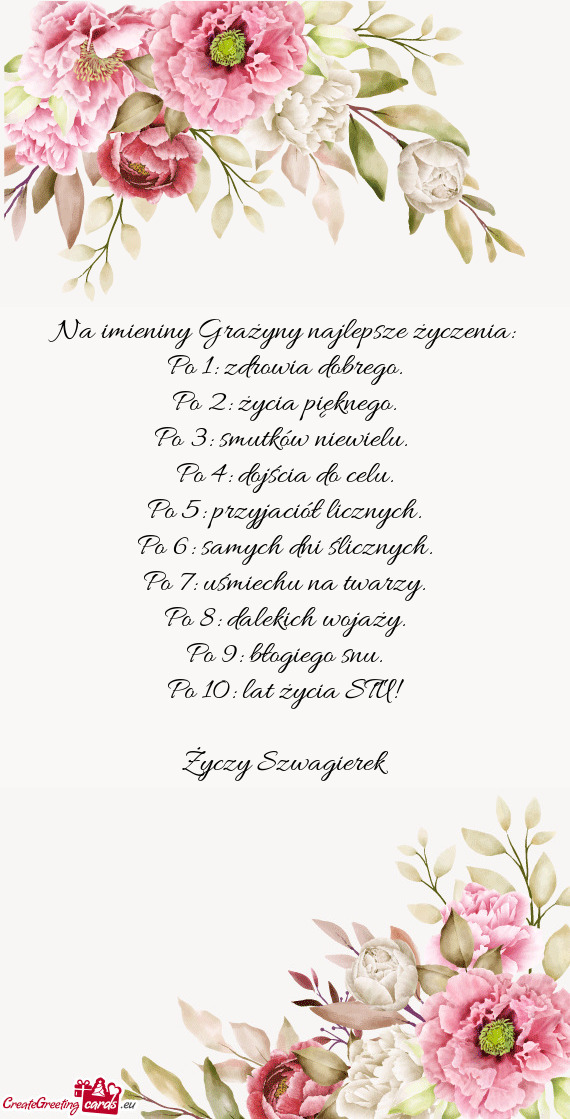 Na imieniny Grażyny najlepsze życzenia:
Po 1: zdrowia dobrego.
Po 2: życia pięknego.
Po 3: smutków niewielu.
Po 4: dojścia do celu.
Po 5: przyjaciół licznych.
Po 6: samych dni ślicznych.
Po 7: uśmiechu na twarzy.
Po 8: dalekich wojaży.
Po 9: błogiego snu.
Po 10: lat życia STU!
Życzy Szwagierek
CreateGreeting cards .eu